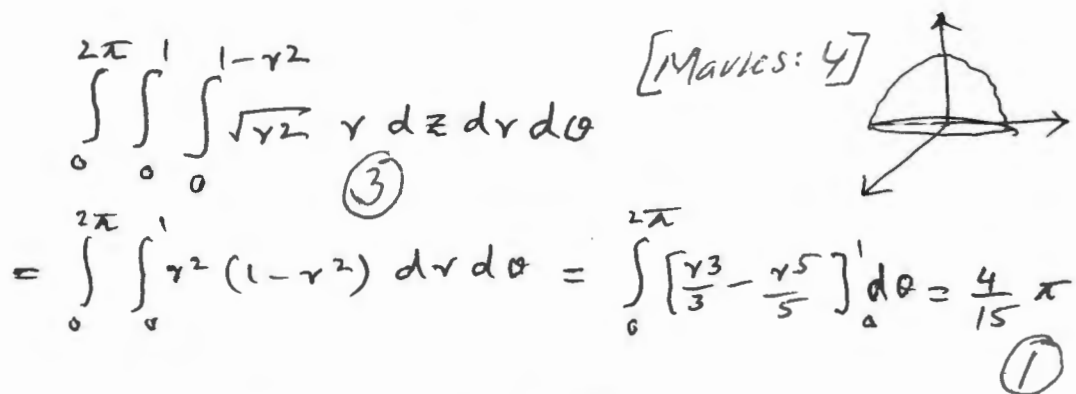 ∫₀^{2π} ∫₀^{1} ∫₀^{1-r2} √r2 r dz dr dθ [Marks: 4]
③
= ∫₀^{2π} ∫₀^{1} r2 (1-r2) dr dθ = ∫₀^{2π} [r3/3 - r5/5]₀^{1} dθ = 4/15 π
①